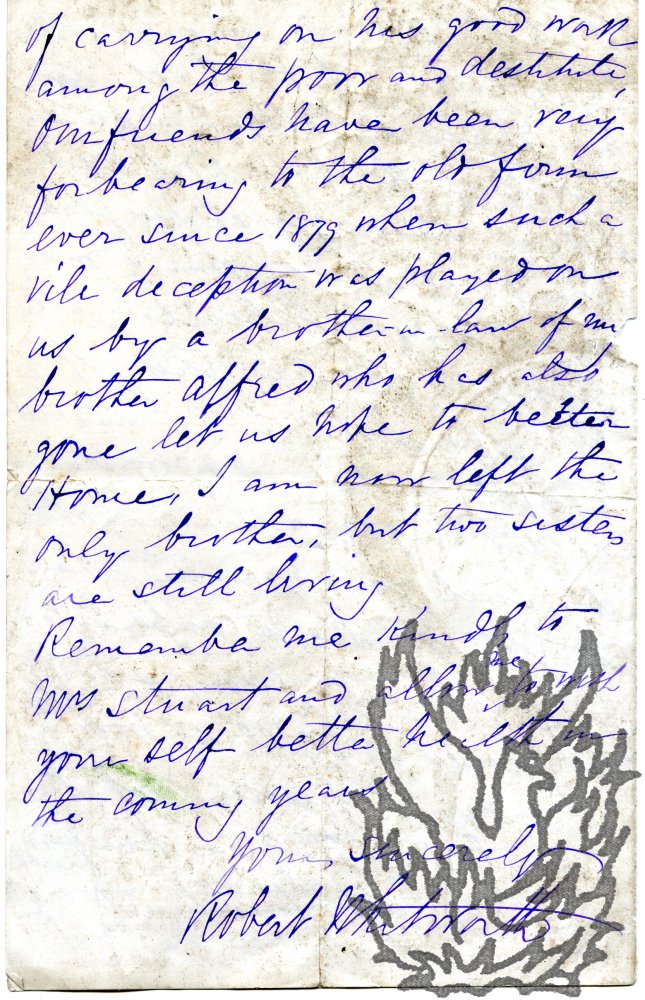 of carrying on his good work
among the poor and destitute,
Our friends have been very
forbearing to the old firm
ever since 1879 when such a
vile deception was played on
us by a brother-in-law of my
brother Alfred who has also
gone let us hope to better
Home, I am now left the
only brother, but two sisters
are still living
Remember me kindly to
Mrs Stuart and allow me to wish
your self better health in
the coming years
Yours sincerely
Robert Whitworth